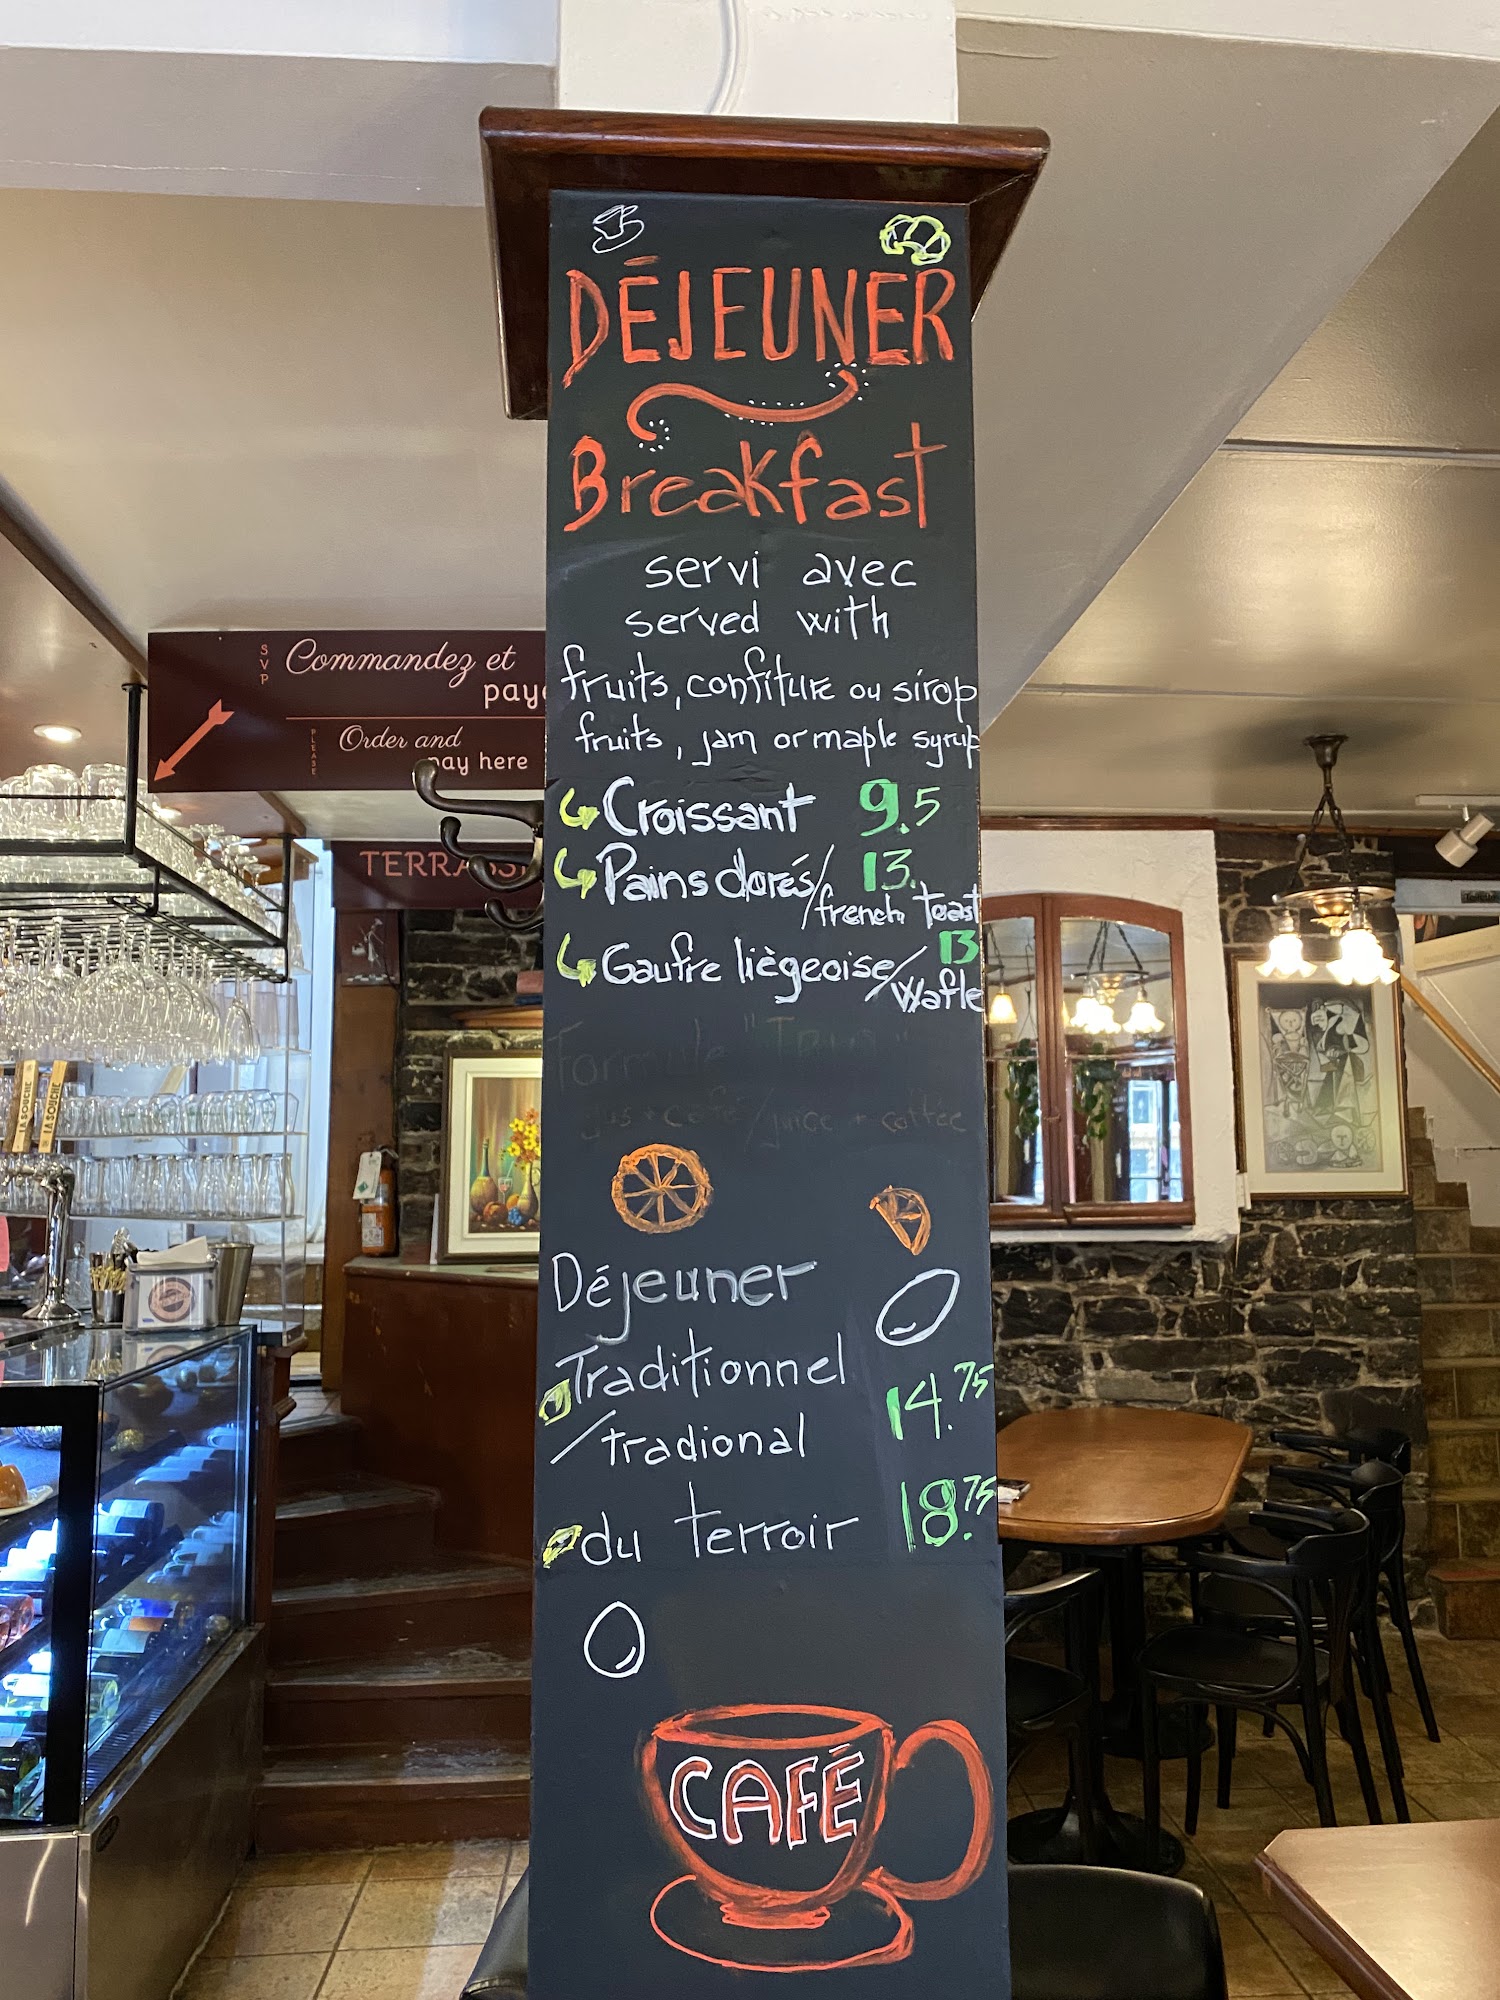 DÉJEUNER
Breakfast
servi avec
served with
fruits, confiture ou sirop
fruits, jam or maple syrup
Croissant 9.5
Pains dorés/ 13.
french toast
Gaufre liègeoise/ 13
Wafle
Formule
jus + café/juice + coffee
Déjeuner
Traditionnel 14.75
/tradional
du terroir 18.75
CAFÉ
SVP
Commandez et
PLEASE
Order and
pay here
LA SOUCHE
LA SOUCHE